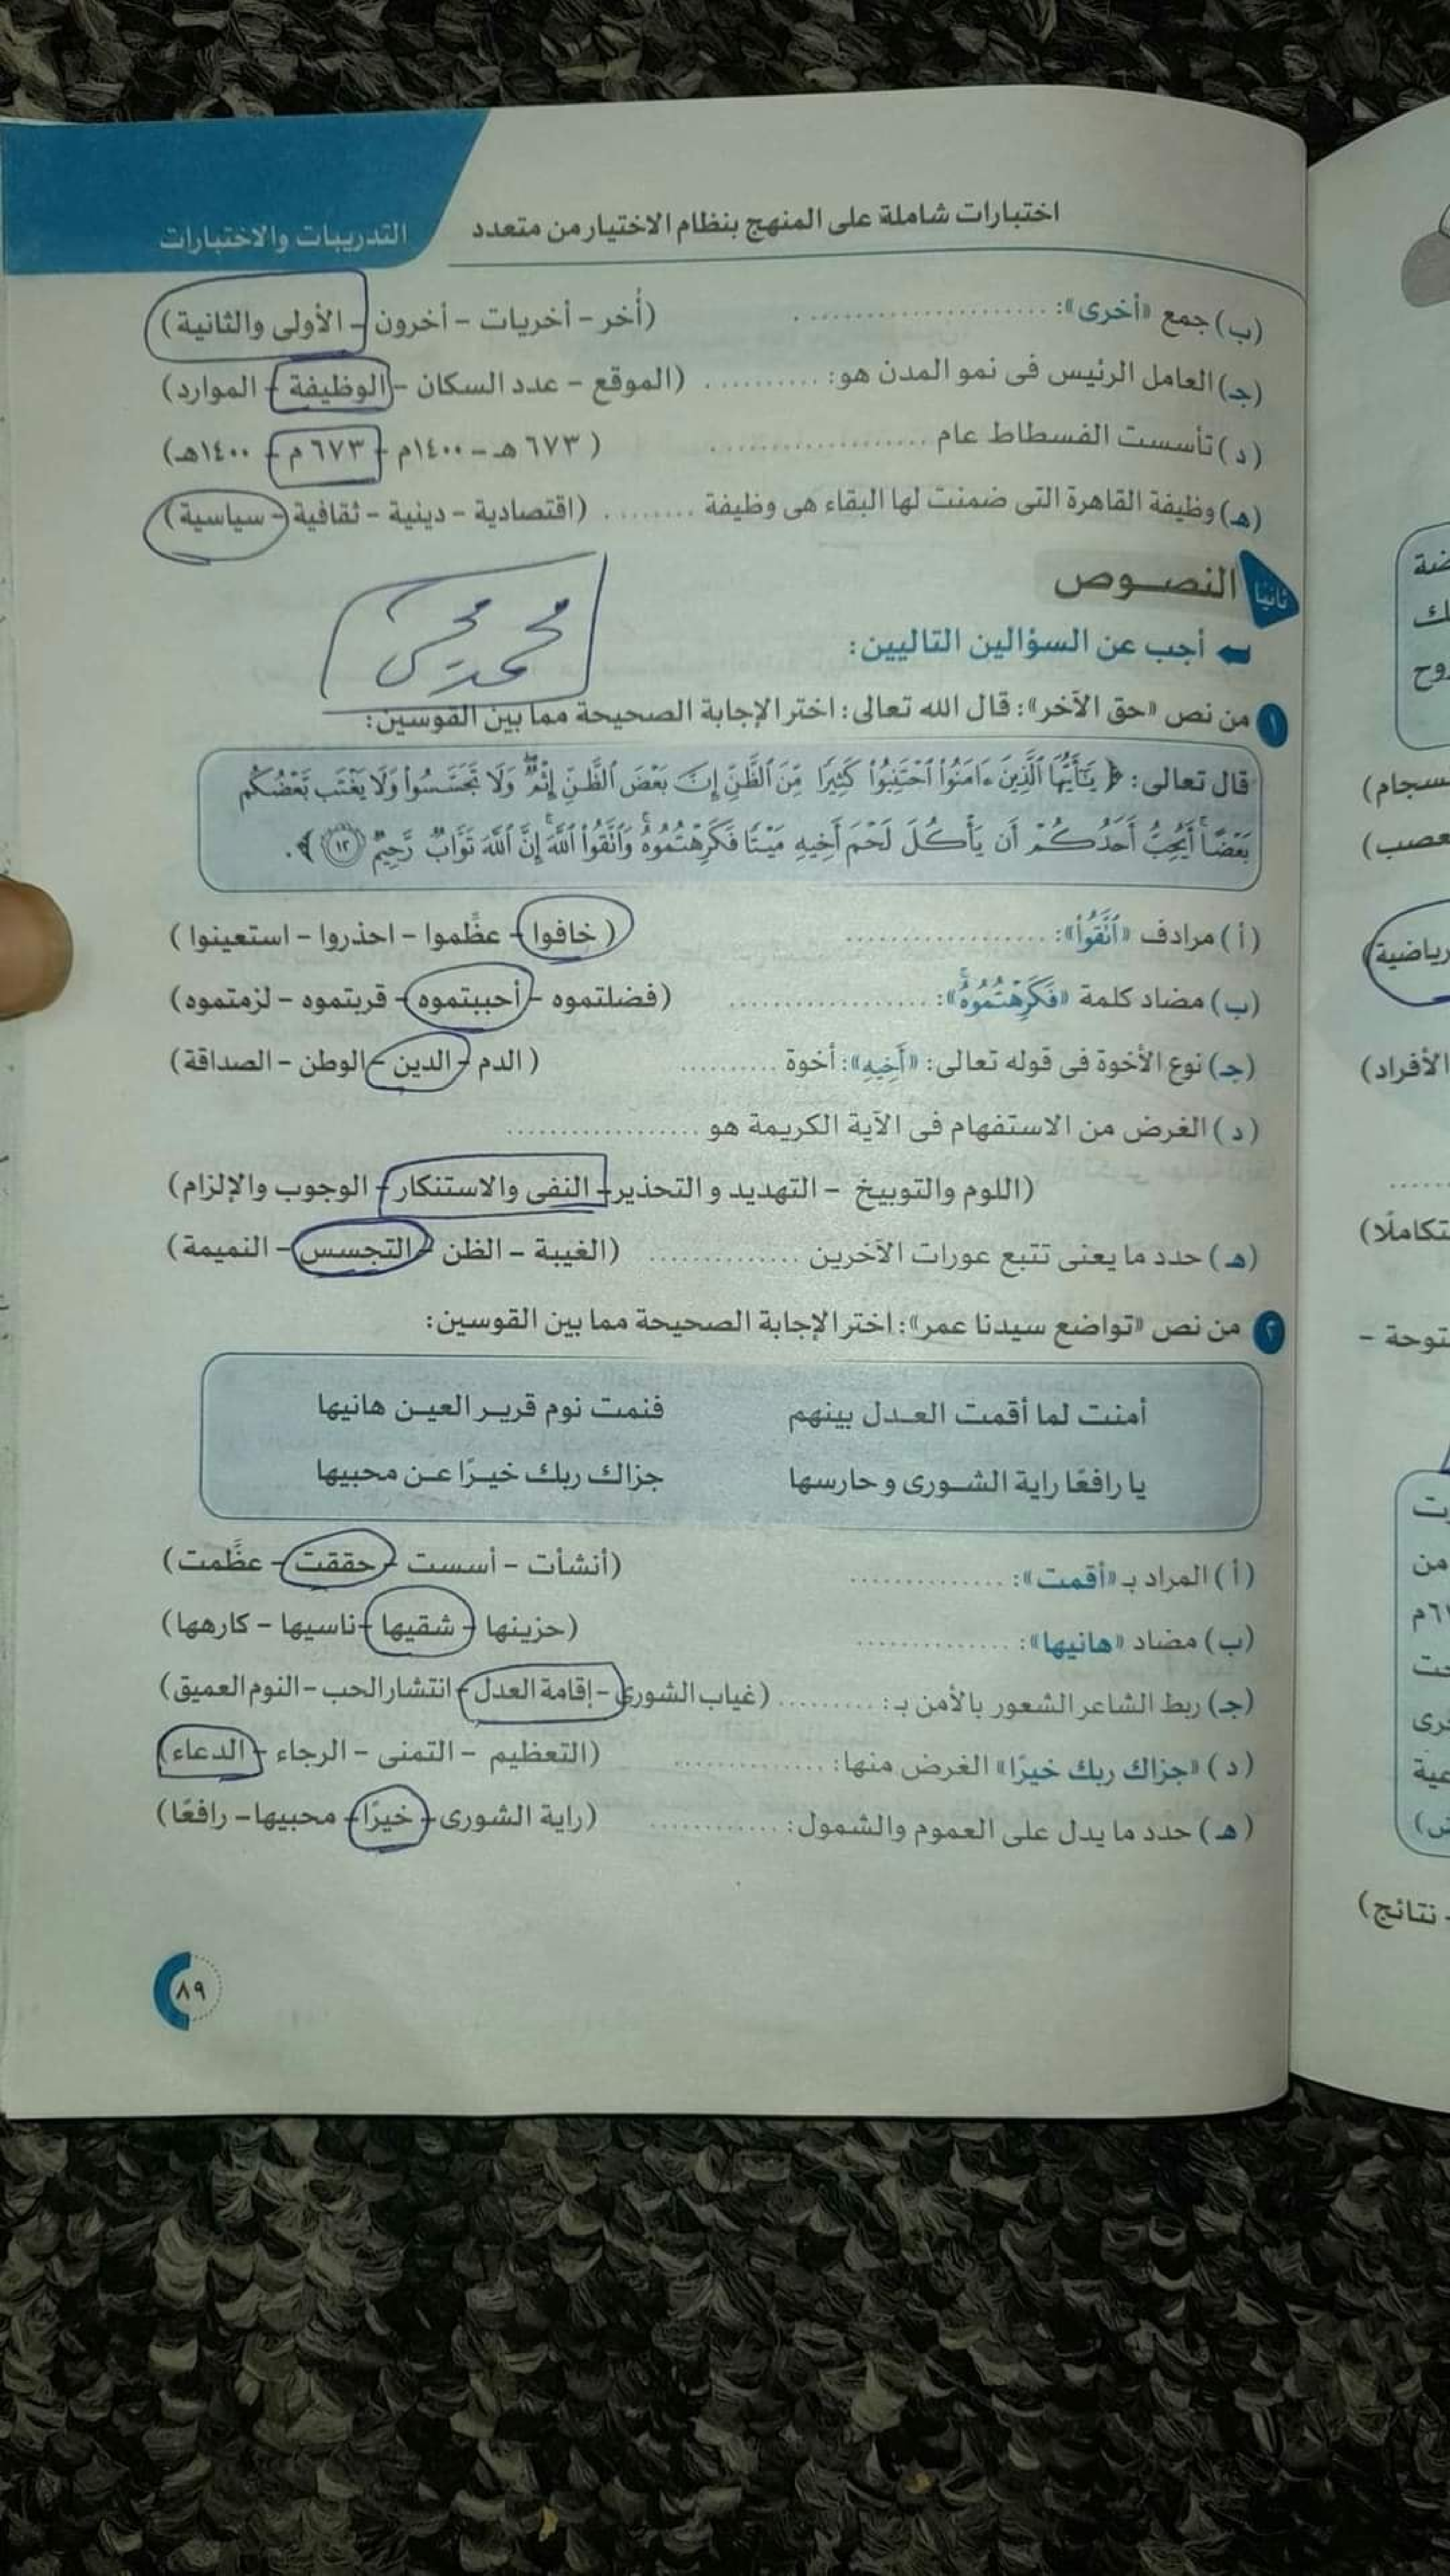 اختبارات شاملة على المنهج بنظام الاختيار من متعدد
التدريبات والاختبارات
(ب) جمع «أخرى»: .................... (أُخر - أخريات - أخرون - الأولى والثانية)
(جـ) العامل الرئيس فى نمو المدن هو: .......... (الموقع - عدد السكان - الوظيفة - الموارد)
(د) تأسست الفسطاط عام .................... (٦٧٣ هـ - ١٤٠٠م - ٦٧٣ م - ١٤٠٠هـ)
(هـ) وظيفة القاهرة التى ضمنت لها البقاء هى وظيفة ........ (اقتصادية - دينية - ثقافية - سياسية)
ثانيًا النصوص
أجب عن السؤالين التاليين:
١ من نص «حق الآخر»: قال الله تعالى: اختر الإجابة الصحيحة مما بين القوسين:
قال تعالى: ﴿ يَـٰٓأَيُّهَا ٱلَّذِينَ ءَامَنُوا۟ ٱجْتَنِبُوا۟ كَثِيرًا مِّنَ ٱلظَّنِّ إِنَّ بَعْضَ ٱلظَّنِّ إِثْمٌ ۖ وَلَا تَجَسَّسُوا۟ وَلَا يَغْتَب بَّعْضُكُم
بَعْضًا ۚ أَيُحِبُّ أَحَدُكُمْ أَن يَأْكُلَ لَحْمَ أَخِيهِ مَيْتًا فَكَرِهْتُمُوهُ ۚ وَٱتَّقُوا۟ ٱللَّهَ ۚ إِنَّ ٱللَّهَ تَوَّابٌ رَّحِيمٌ ١٢ ﴾.
(أ) مرادف «ٱتَّقُوا۟»: .................. (خافوا - عظَّموا - احذروا - استعينوا)
(ب) مضاد كلمة «فَكَرِهْتُمُوهُ ۚ»: .................. (فضلتموه - أحببتموه - قربتموه - لزمتموه)
(جـ) نوع الأخوة فى قوله تعالى: «أَخِيهِ»: أخوة .......... (الدم - الدين - الوطن - الصداقة)
(د) الغرض من الاستفهام فى الآية الكريمة هو ..................
(اللوم والتوبيخ - التهديد والتحذير - النفى والاستنكار - الوجوب والإلزام)
(هـ) حدد ما يعنى تتبع عورات الآخرين .............. (الغيبة - الظن - التجسس - النميمة)
٢ من نص «تواضع سيدنا عمر»: اختر الإجابة الصحيحة مما بين القوسين:
أمنت لما أقمت العـدل بينهم فنمت نوم قريـر العيـن هانيها
يا رافعًا راية الشـورى وحارسها جزاك ربك خيـرًا عـن محبيها
(أ) المراد بـ «أقمت»: .............. (أنشأت - أسست - حققت - عظَّمت)
(ب) مضاد «هانيها»: .............. (حزينها - شقيها - ناسيها - كارهها)
(جـ) ربط الشاعر الشعور بالأمن بـ: .......... (غياب الشورى - إقامة العدل - انتشار الحب - النوم العميق)
(د) «جزاك ربك خيرًا» الغرض منها: .............. (التعظيم - التمنى - الرجاء - الدعاء)
(هـ) حدد ما يدل على العموم والشمول: ............ (راية الشورى - خيرًا - محبيها - رافعًا)
٨٩
رياضية
الأفراد)
نتائج)